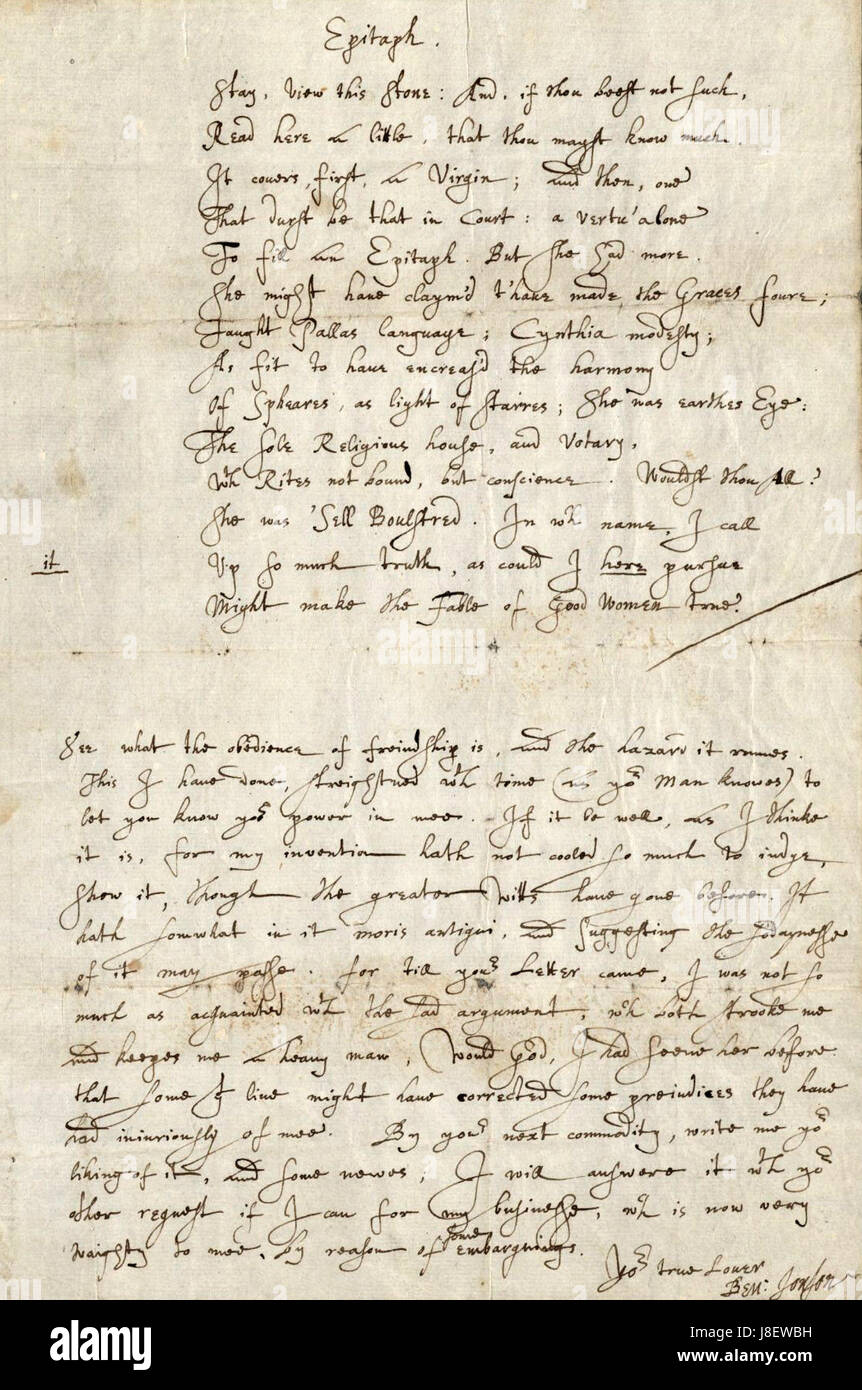 Epitaph.
Stay, view this Stone: And, if thou beest not such,
Read here a little, that thou mayst know much.
It couers, first, a Virgin; and then, one
That durst be that in Court: a vertu' alone
To fill an Epitaph. But she had more.
She might haue claym'd t'haue made the Graces foure;
Taught Pallas language; Cynthia modesty;
As fit to haue encreas'd the harmony
Of Spheares, as light of starres; She was earthes Eye:
The sole Religious house, and Votary,
Wth Rites not bound, but conscience. Wouldst thou All?
She was 'Sell Boulstred. In wch name, I call
it
Vp so much truth, as could I here pursue
Might make the Fable of Good Women true.
See what the obedience of freindship is, and the hazard it runnes.
This I haue done, streightned wth time (as yor Man knowes) to
let you know yor power in mee. If it be well, as I thinke
it is, for my invention hath not cooled so much to iudge,
show it, though the greater Witts haue gone before. It
hath somwhat in it moris antiqui, and suggesting the sodaynesse
of it may passe. For till your Letter came, I was not so
much as acquainted wth the sad argument, wch both strooke me
and keepes me a heauy man, Would God, I had seene her before
that some yt liue might haue corrected some preiudices they haue
had iniuriously of mee. By your next commodity, write me yor
liking of it, and some newes; I will answere it wth yor
other request if I can for my businesse, wch is now very
waighty to mee, by reason of some embarquings.
Yor true Louer
Ben: Jonson
alamy
Image ID: J8EWBH
www.alamy.com